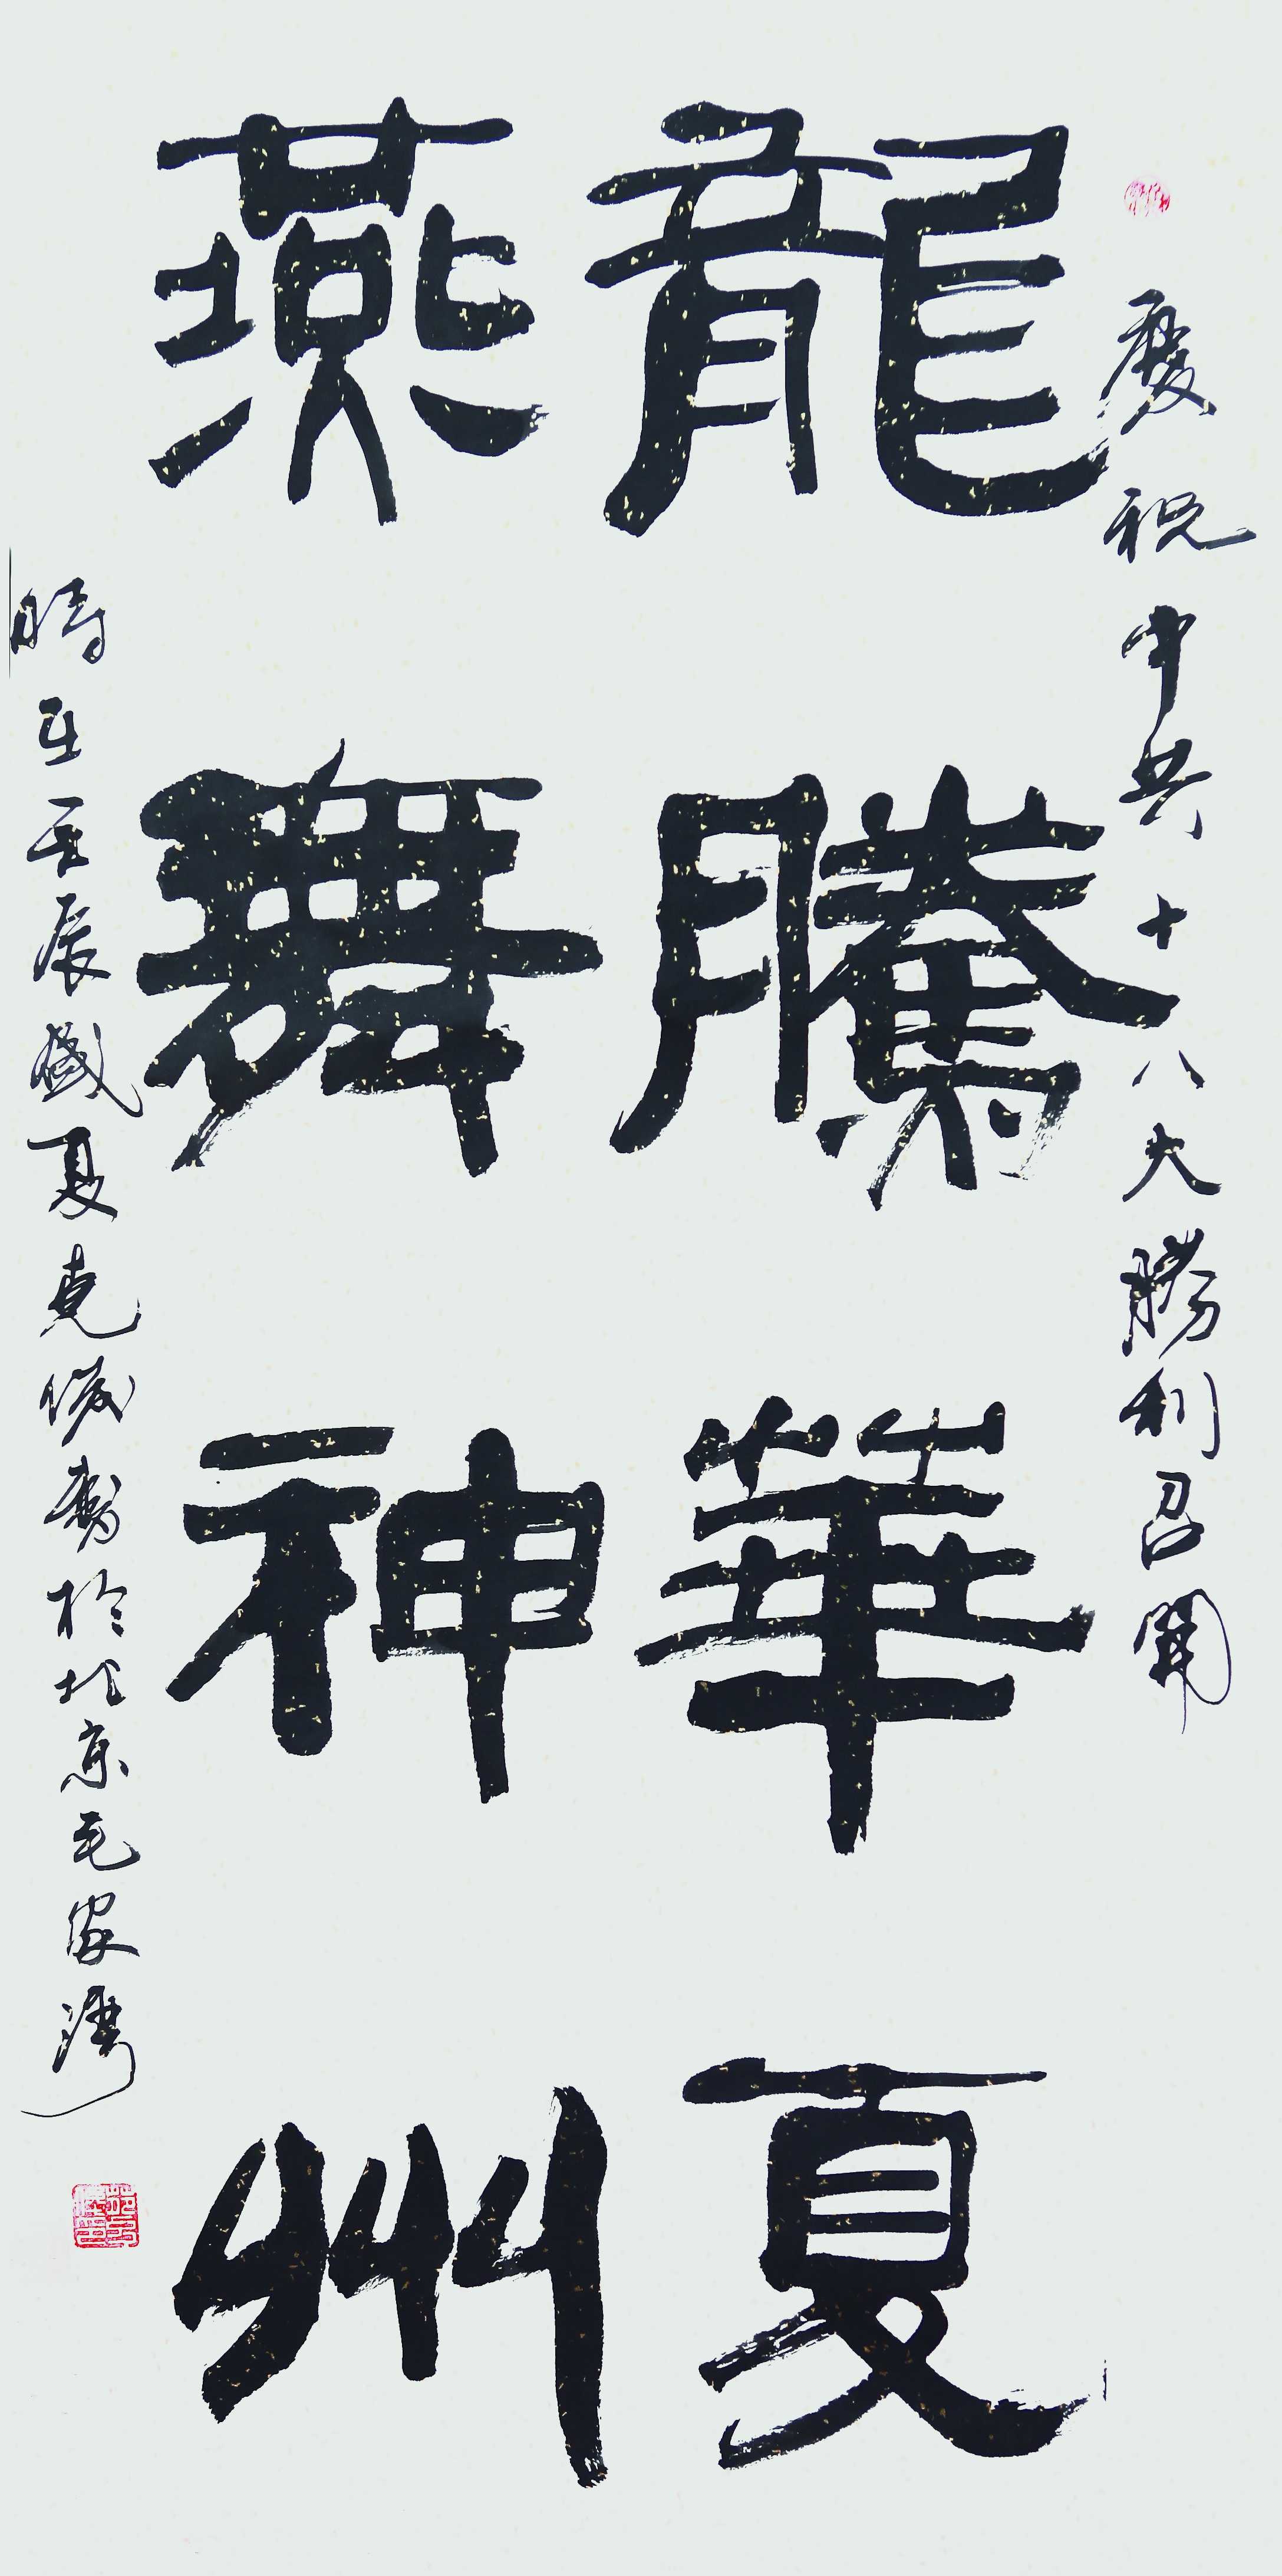 慶祝中共十八大勝利召開
龍騰華夏
燕舞神州
時在壬辰盛夏克俊書於北京毛家灣